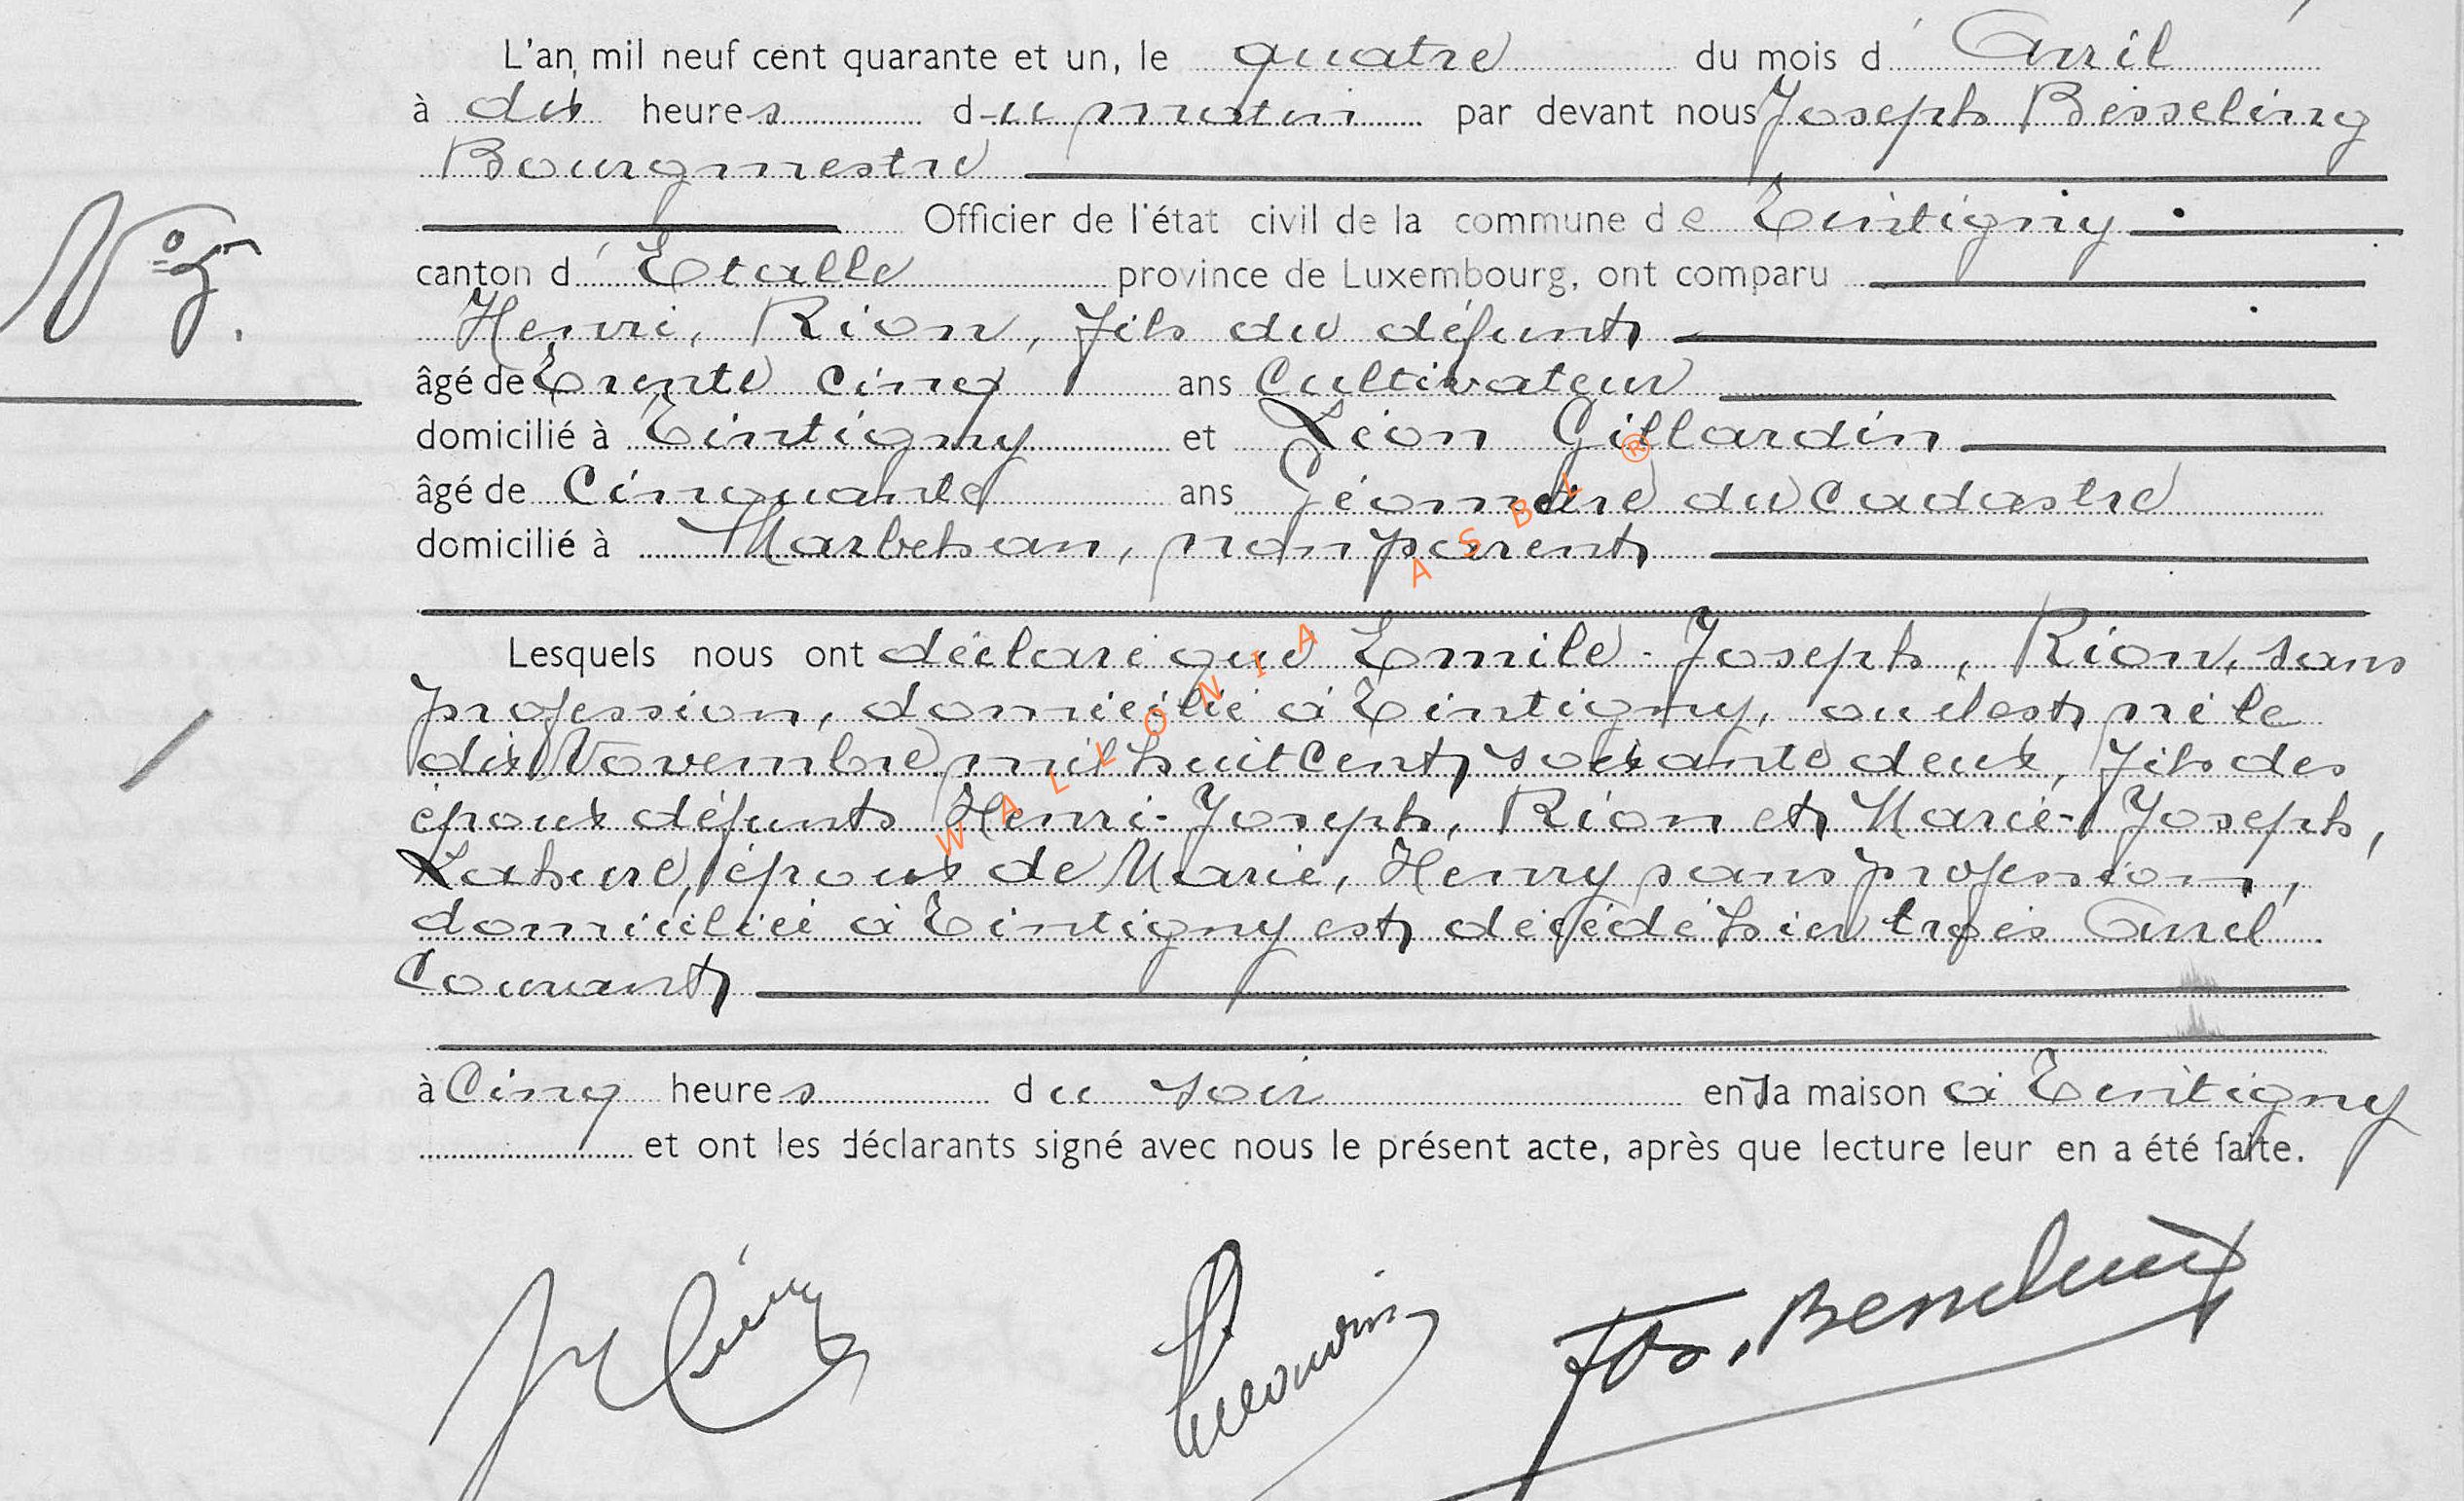 L'an mil neuf cent quarante et un, le quatre du mois d'Avril
à dix heures du matin par devant nous Joseph Besseling
Bourgmestre
Officier de l'état civil de la commune de Tintigny
N° 5.
canton d'Etalle province de Luxembourg, ont comparu
Henri, Rion, fils du défunt
âgé de Trente cinq ans Cultivateur
domicilié à Tintigny et Léon Gillardin
âgé de Cinquante ans Géomètre du Cadastre
domicilié à Marbehan, non parent
Lesquels nous ont déclaré que Emile-Joseph, Rion, sans
profession, domicilié à Tintigny, où il est né le
dix Novembre mil huit Cent soixante deux, fils des
époux défunts Henri-Joseph, Rion et Marie-Joseph,
Lahure, époux de Marie, Henry sans profession,
domiciliée à Tintigny est décédé hier trois Avril
Courant
à Cinq heures du soir en sa maison à Tintigny
et ont les déclarants signé avec nous le présent acte, après que lecture leur en a été faite.
Jos. Besseling
WALLONIA ASBL ®